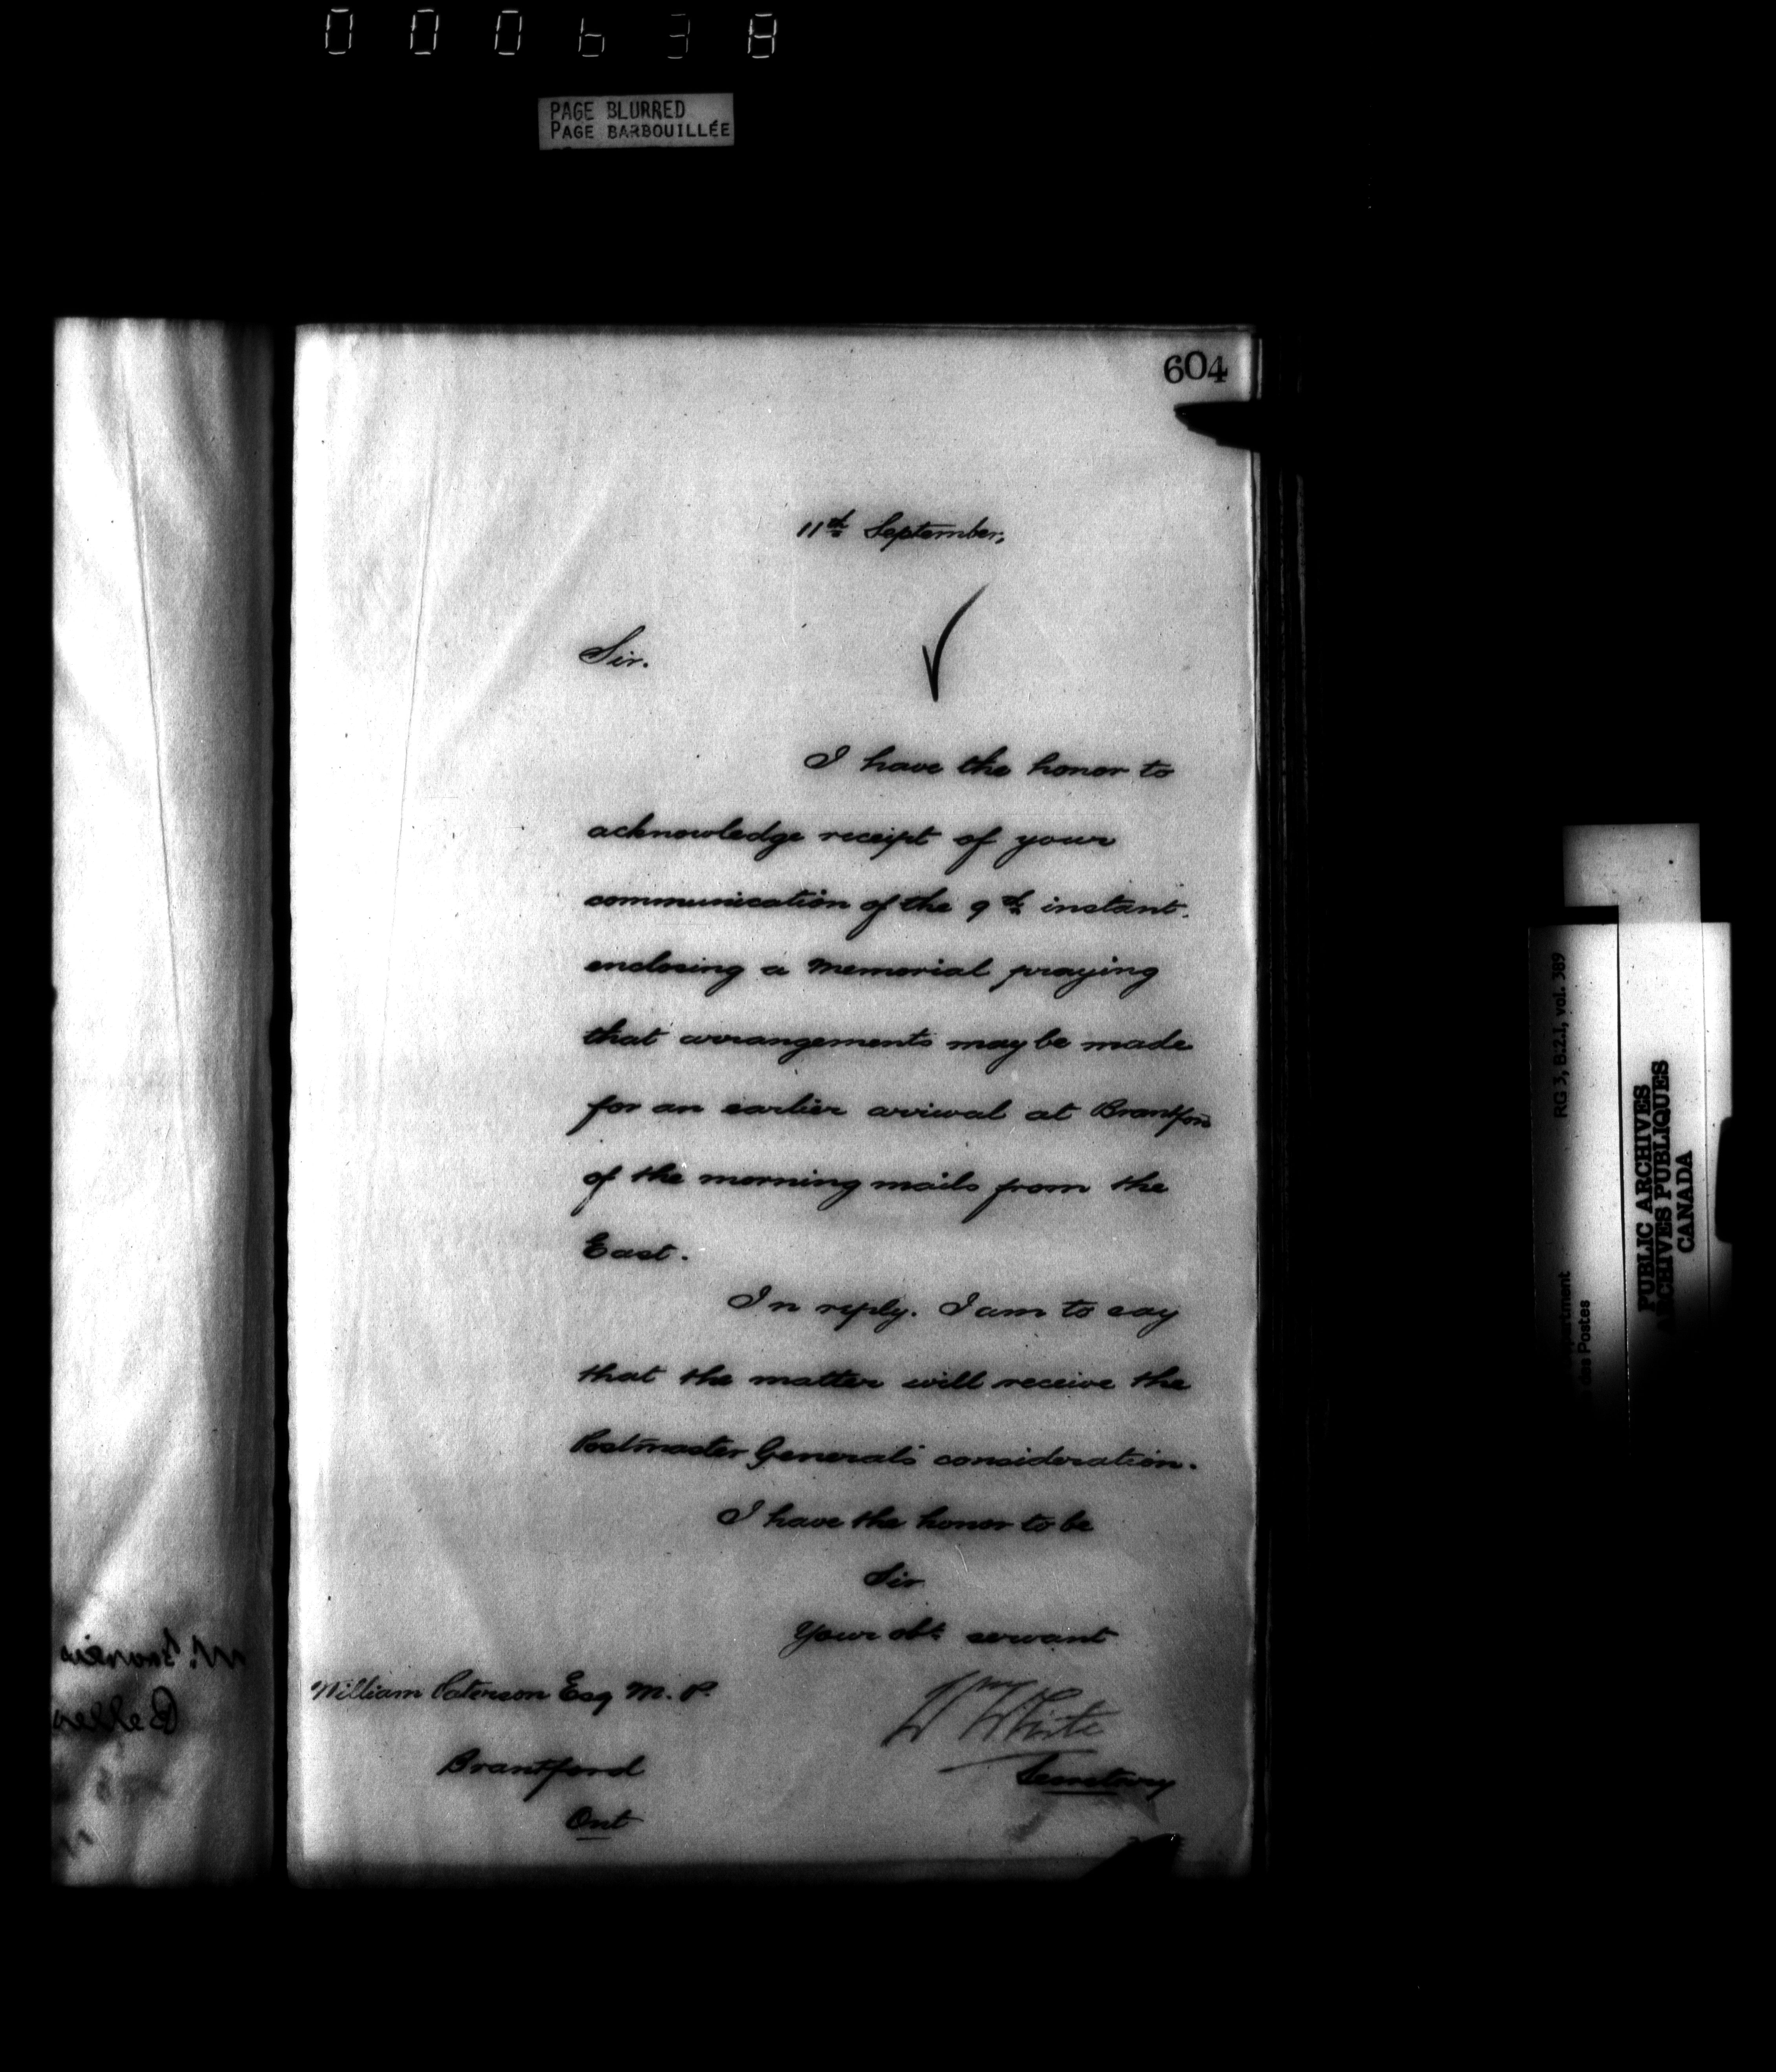 000638
PAGE BLURRED
PAGE BARBOUILLÉE
604
11th September,
Sir.
I have the honor to
acknowledge receipt of your
communication of the 9th instant.
enclosing a memorial praying
that arrangements may be made
for an earlier arrival at Brantford
of the morning mails from the
East.
In reply. I am to say
that the matter will receive the
Postmaster General's consideration.
I have the honor to be
Sir
Your obt. servant
Wm White
Secretary
William Paterson Esq M. P.
Brantford
Ont
RG 3, B.2.1, vol. 389
des Postes
PUBLIC ARCHIVES
ARCHIVES PUBLIQUES
CANADA